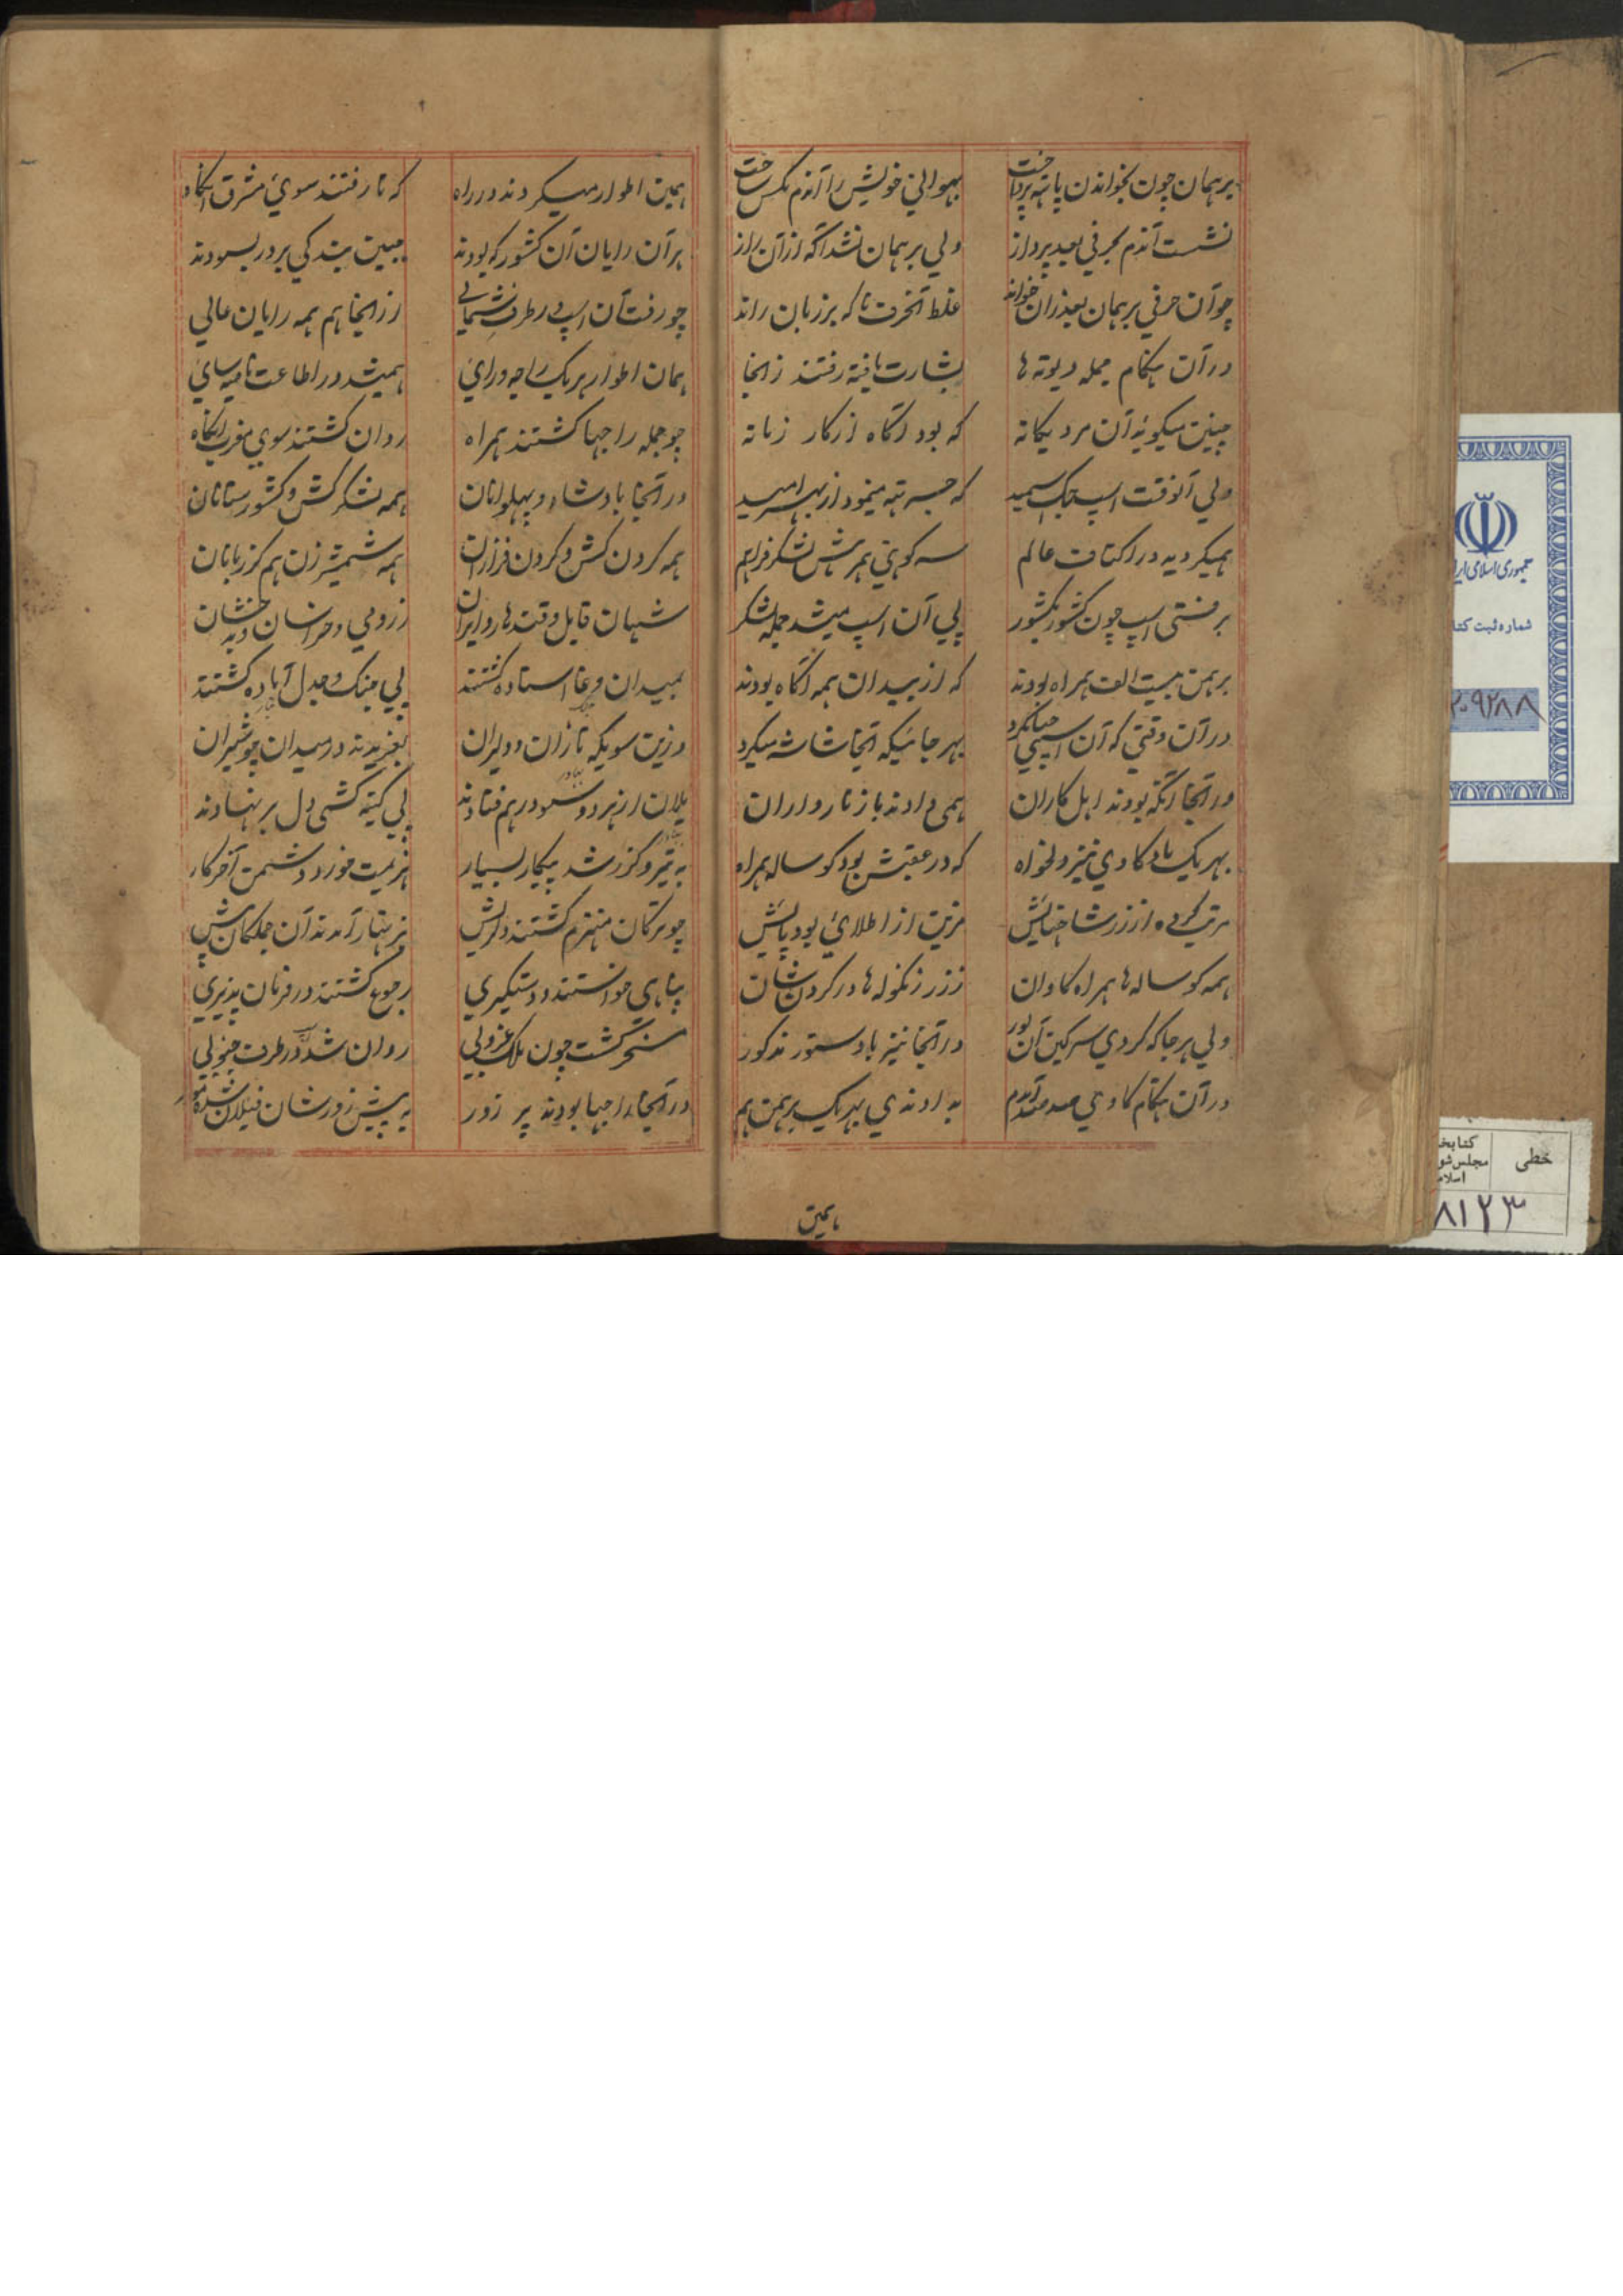 برهمان چون بخواندن پاتهه پرداخت بهوانی خویش را آندم مکس ساخت
نشست آندم بحرفی بعد پرواز ولی برهمان نشد آگه از آن راز
چو آن حرفی برهمان بعد از آن خواند غلط آنحرف ناگه بر زبان راند
در آن هنگام جمله دیوته ها بشارت یافته رفتند زانجا
چنین میگوید آن مرد یگانه که بود آگاه از کار زمانه
ولی آنوقت اسپ جگ سپید که جسرتهه مینمود از بهر امید
همیگردید در اکناف عالم سه کوهنی همرهش لشکر فراهم
برفتی اسپ چون کشور بکشور پی آن اسپ میشد جمله لشکر
برهمن بیست الف همراه بودند که از بیدان همه آگاه بودند
در آن وقتی که آن اسپ بهر جائیکه آنجا شاشه میکرد
در آنجا آنکه بودند اهل کاران همی دادند با زناروداران
بهر یک مادگاوی نیز دلخواه که در عقبش بود گوساله همراه
مرتب کرده از زر شاخهایش مزین از طلای بود پایش
همه گوساله ها همراه گاوان ز زر زنگوله ها در گردن شان
ولی هر جا که کردی سرگین آن بور در آنجا نیز با دستور مذکور
در آن هنگام گاوی صد به اوندی بهر یک برهمن هم
همین
همین اطوار میکردند در راه که تا رفتند سوی مشرق آنگاه
هر آن رایان آن کشور که بودند جبین بندگی بر در بسودند
چو رفت آن اسپ در طرف شمالی از آنجا هم همه رایان عالی
همان اطوار هر یک راجه و رای همیشد در اطاعت ناصیه سای
چو جمله راجها گشتند همراه روان گشتند سوی مغرب آنگاه
در آنجا بادشاه و پهلوانان همه لشکرکش و کشورستانان
همه گردن کش و گردن فرازان همه شمشیرزن هم گرزبازان
شهان قابل و قندهار و ایران ز رومی و خراسان و بدخشان
بمیدان وغا استاده گشتند پی جنگ و جدل آماده گشتند
وزین سو یکه تازان و دلیران بغریدند در میدان چو شیران
یلان از هر دو سو درهم فتادند پی کینه کشی دل بر نهادند
به تیر و گرز شد پیکار بسیار هزیمت خورد دشمن آخر کار
چو ترکان منهزم گشتند و دلریش بزنهار آمدند آن جملگان پیش
پناهی خواستند و دستگیری رجوع گشتند در فرمان پذیری
مسخر گشت چون ملک غروبی روان شد اسپ در طرف جنوبی
در آنجا راجها بودند پر زور به پیش زورشان فیلان شده مور
جمهوری اسلامی ایر
شماره ثبت کتا
۲۰۹۲۸۸
خطی
کتابخ
مجلس شو
اسلام
۸۱۲۳